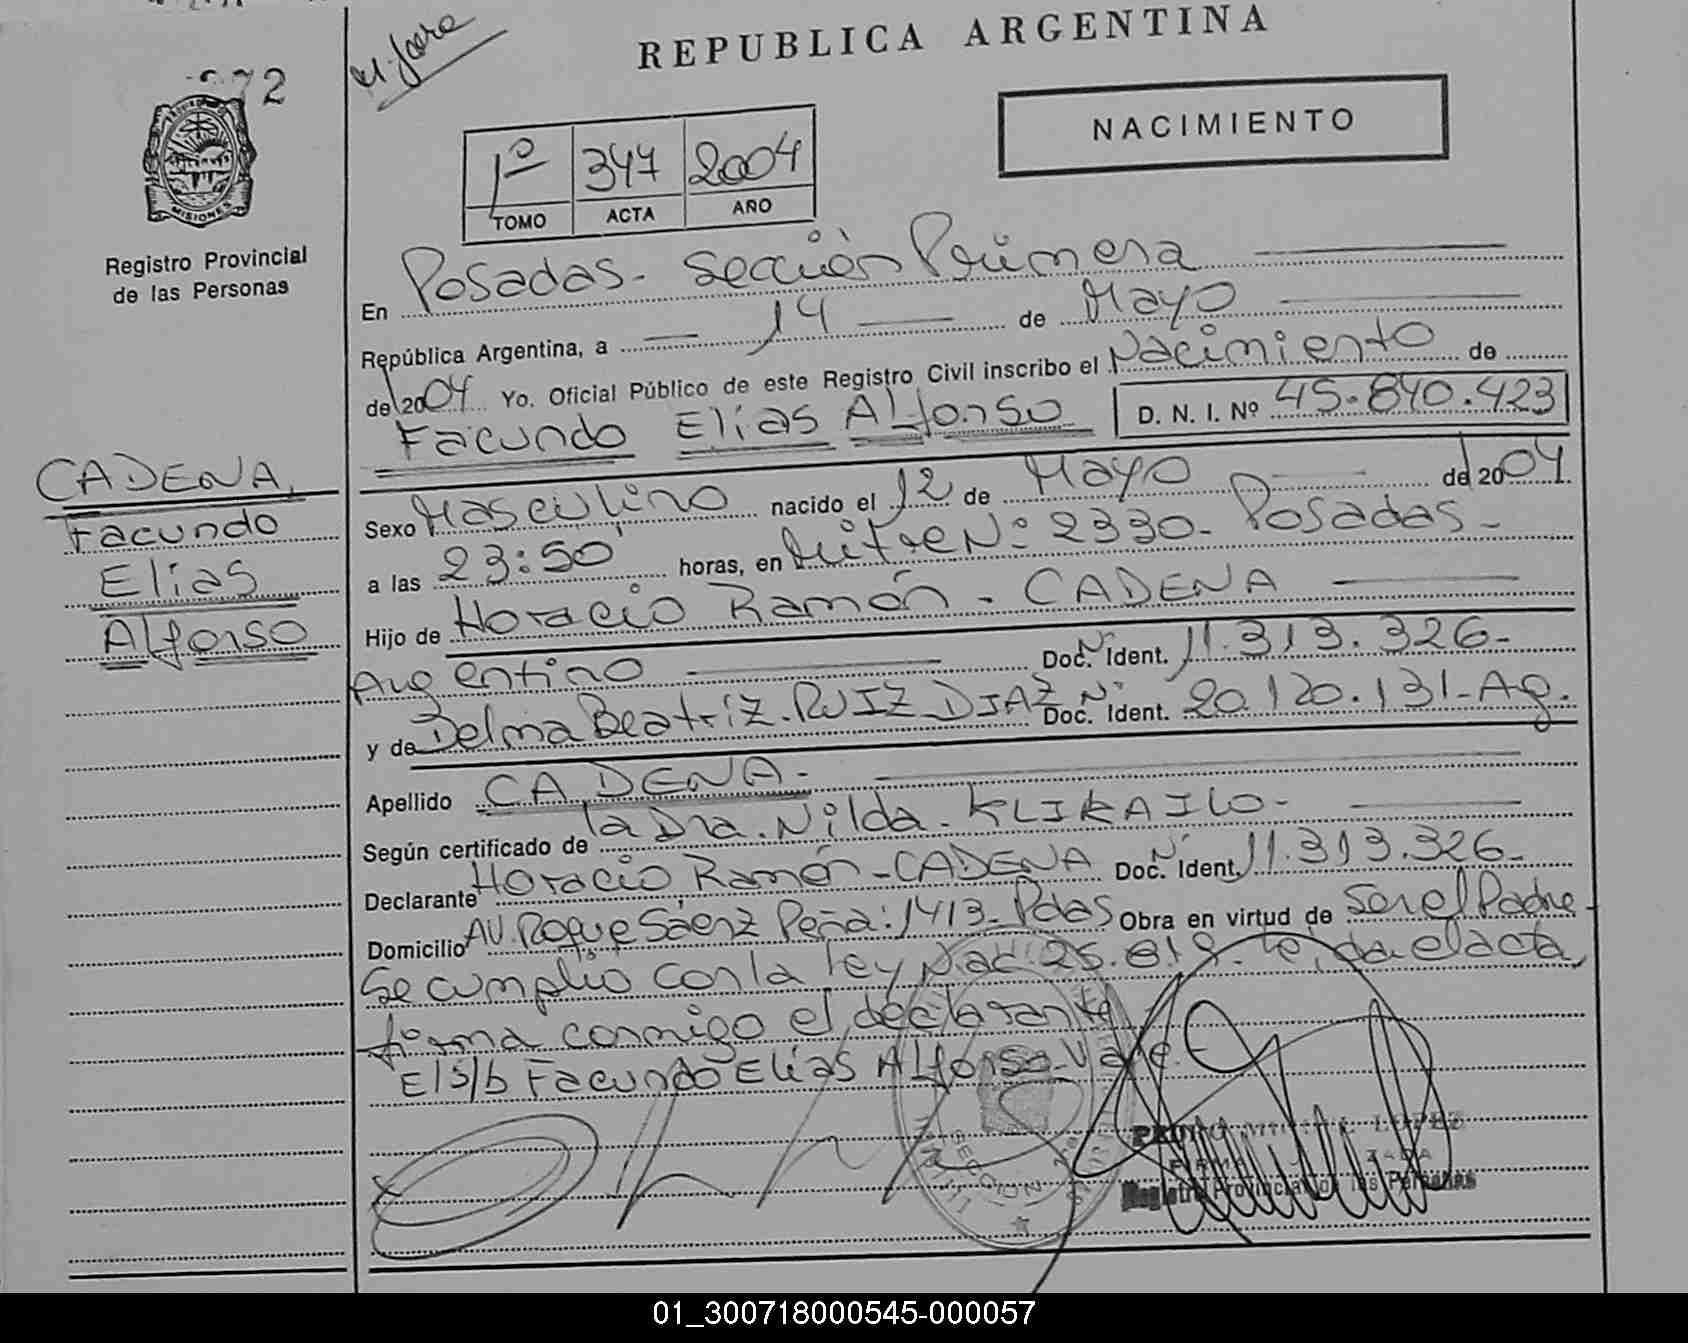 72
REPUBLICA ARGENTINA
NACIMIENTO
1º 347 2004
TOMO ACTA AÑO
MISIONES
Registro Provincial
de las Personas
En Posadas - Sección Primera
República Argentina, a 14 de Mayo
de 2004 Yo. Oficial Público de este Registro Civil inscribo el Nacimiento de
Facundo Elías Alfonso D. N. I. Nº 45.840.423
CADENA,
Facundo
Elías
Alfonso
Sexo Masculino nacido el 12 de Mayo de 2004
a las 23:50' horas, en Mitre Nº 2330 - Posadas -
Hijo de Horacio Ramón - CADENA
Argentino Doc. Nº Ident. 11.313.326 -
y de Belma Beatríz - RUIZ DIAZ Doc. Nº Ident. 20.120.131 - Ag.
Apellido CADENA -
Según certificado de la Dra. Nilda - KLIKAILO -
Declarante Horacio Ramón - CADENA Doc. Nº Ident. 11.313.326 -
Domicilio AV. Roque Sáenz Peña: 1413 - Pdas Obra en virtud de Ser el Padre -
Se cumplió con la ley Nac: 25.819 - leída el acta,
firma conmigo el declarante
E/S/b Facundo Elías Alfonso - Vale
SECCION
LOPEZ
Registro Provincial de las Personas
01_300718000545-000057